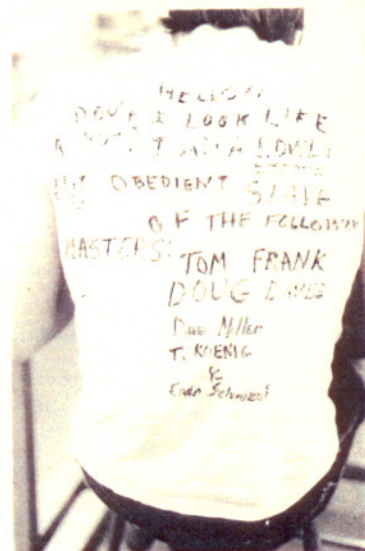 HELLO!!!
DON'T I LOOK LIKE
A I AM A LOWLY
OBEDIENT SLAVE
OF THE FOLLOWING
MASTERS:
TOM FRANK
DOUG DAVIS
Dave Miller
T. KOENIG
&